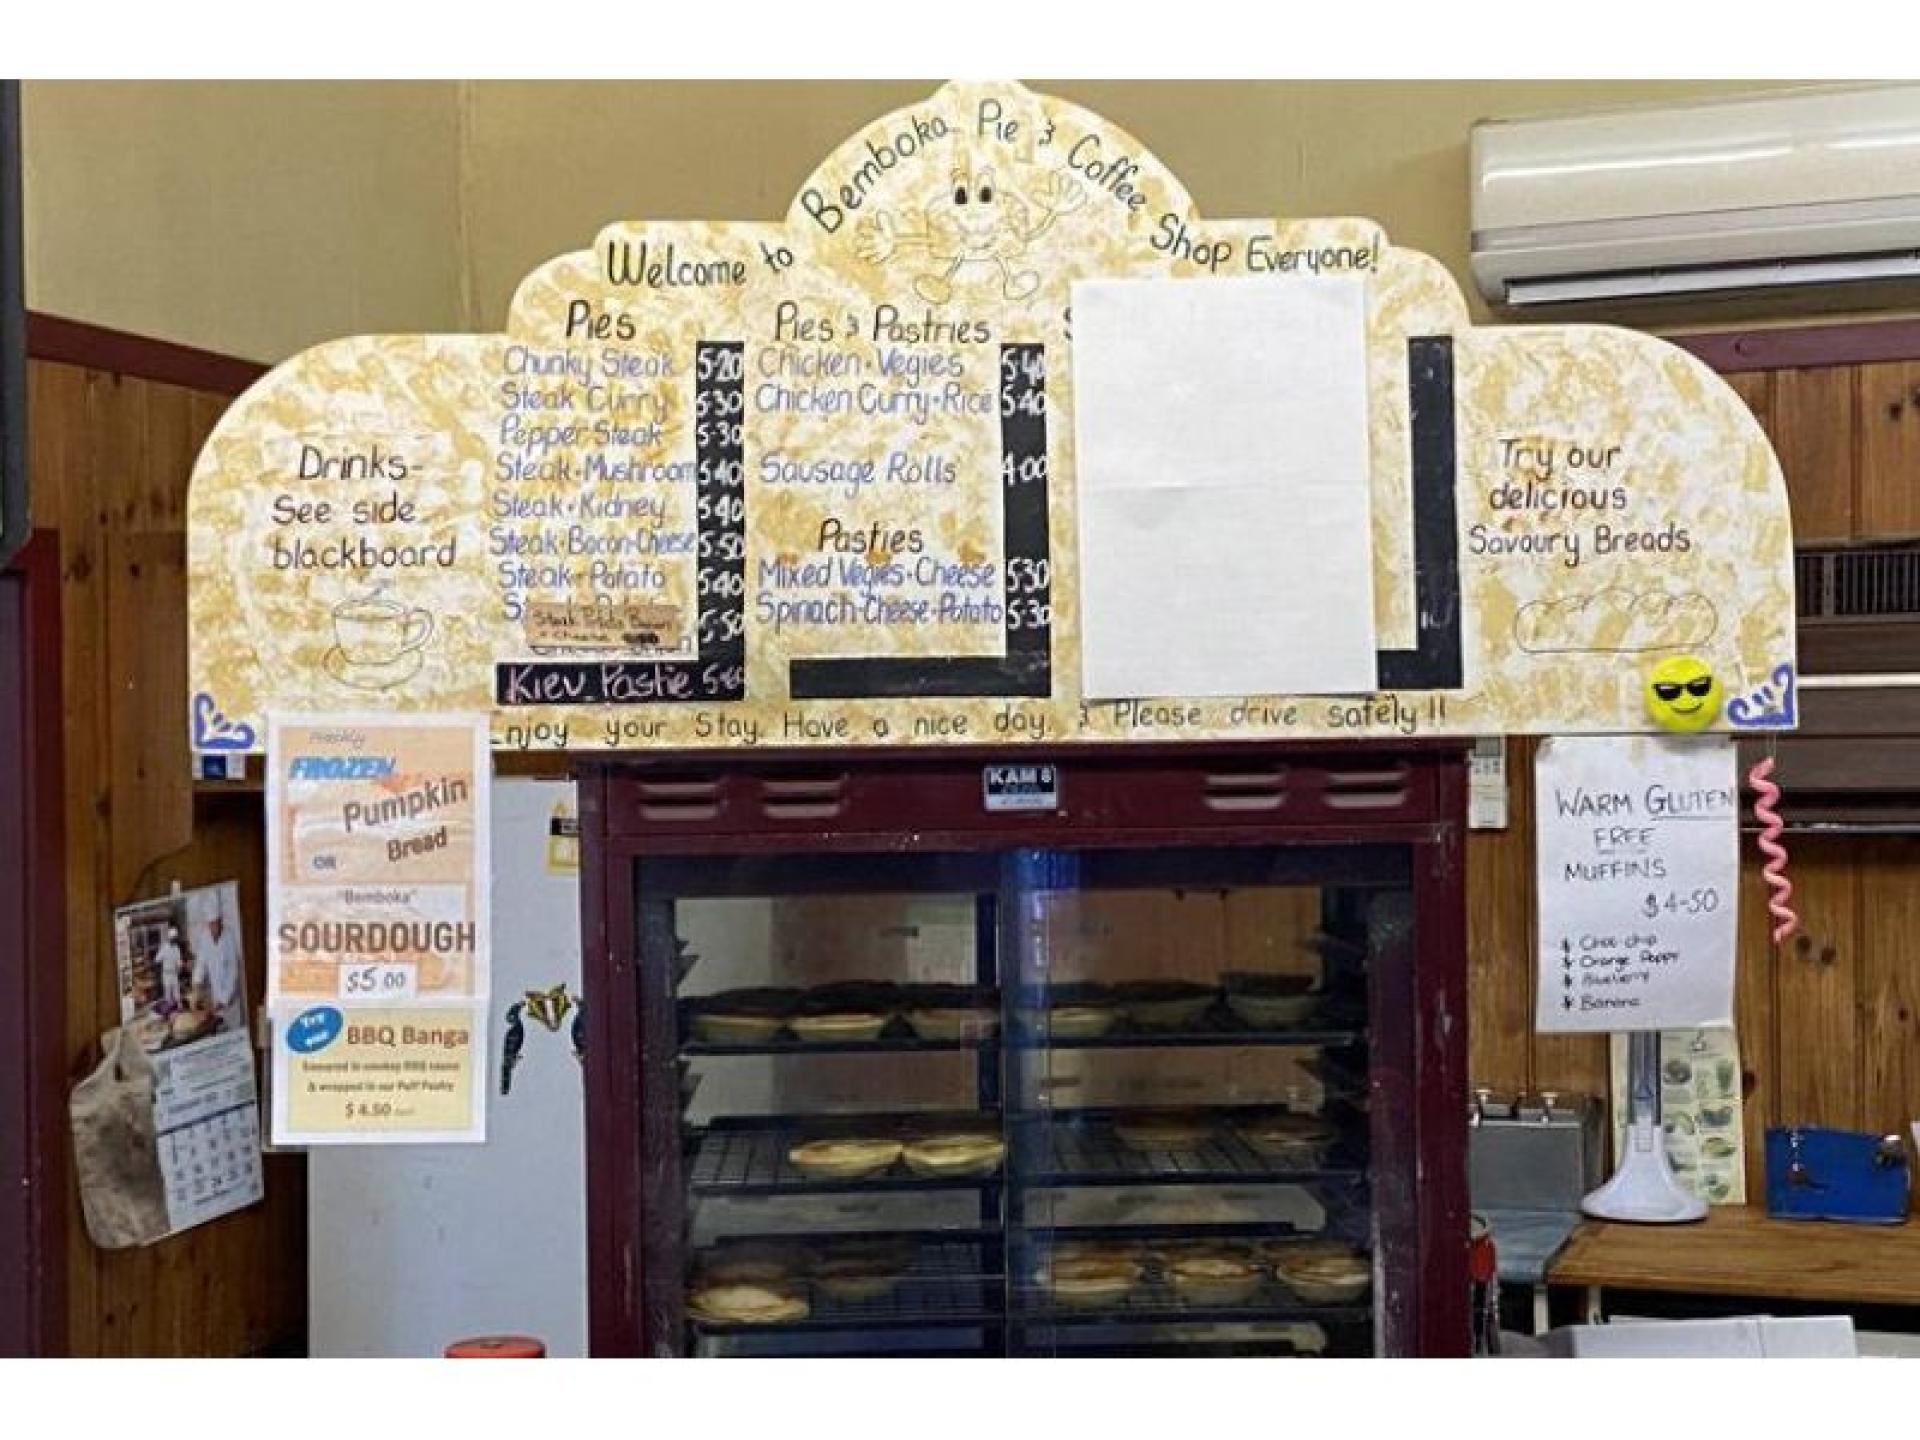 Welcome to Bemboka Pie & Coffee Shop Everyone!
Drinks-
See side
blackboard
Pies
Chunky Steak 5.20
Steak Curry 5.30
Pepper Steak 5.30
Steak • Mushroom 5.40
Steak • Kidney 5.40
Steak • Bacon • Cheese 5.50
Steak • Potato 5.40
Steak Potato Bacon
+ Cheese
5.50
Kiev Pastie
Pies & Pastries
Chicken • Vegies 5.40
Chicken Curry • Rice 5.40
Sausage Rolls 4.00
Pasties
Mixed Vegies • Cheese 5.30
Spinach • Cheese • Potato 5.30
Try our
delicious
Savoury Breads
Enjoy your Stay. Have a nice day. & Please drive safely!!
FROZEN
Pumpkin
Bread
OR
"Bemboka"
SOURDOUGH
$5.00
Try
our
BBQ Banga
Smothered in smokey BBQ sauce
& wrapped in our Puff Pastry
$4.50
KAM 8
WARM GLUTEN
FREE
MUFFINS
$4-50
Choc chip
Orange Poppy
Blueberry
Banana